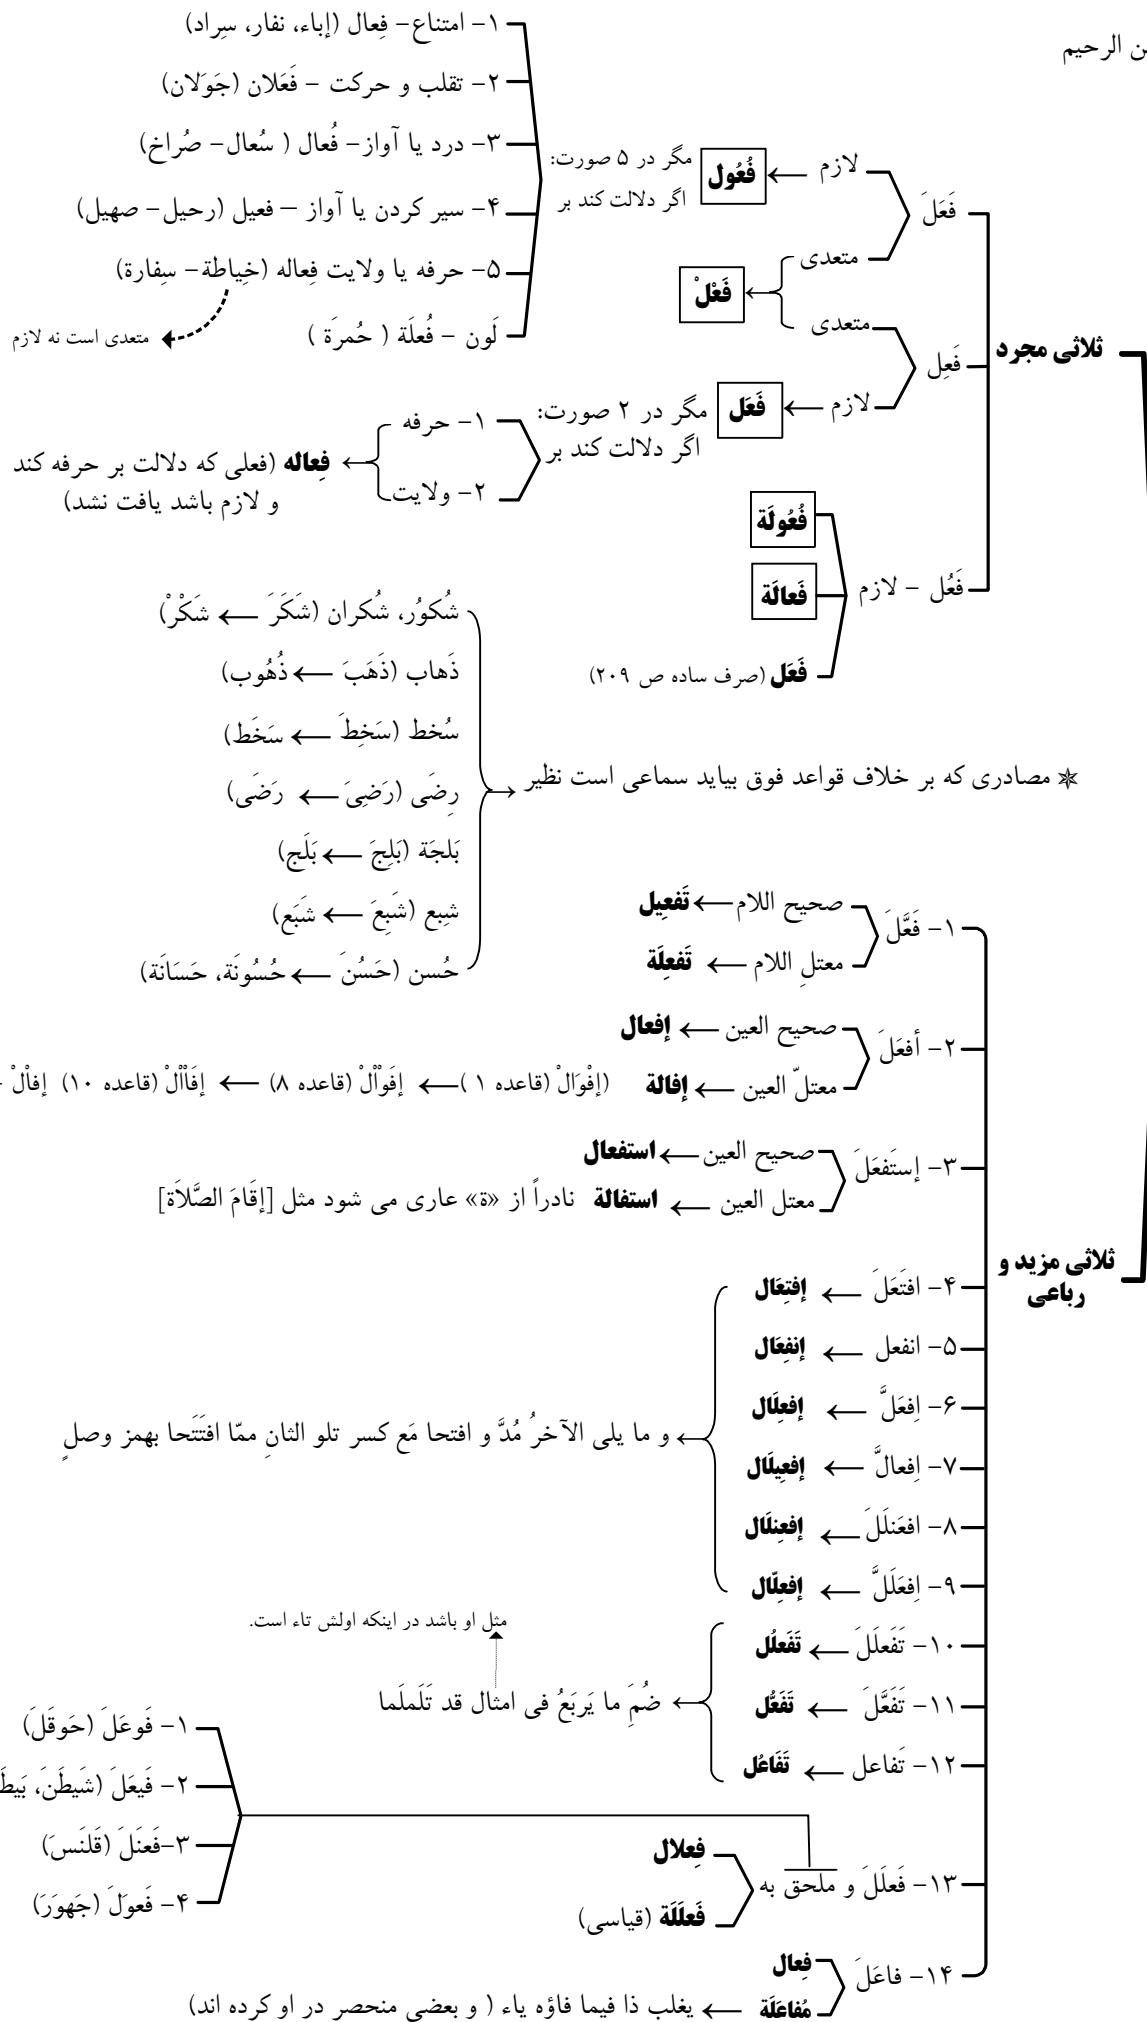 ن الرحیم
ثلاثی مجرد
فَعَلَ
لازم ← فُعُول
مگر در ۵ صورت:
اگر دلالت کند بر
۱- امتناع- فِعال (إباء، نفار، سِراد)
۲- تقلب و حرکت – فَعَلان (جَوَلان)
۳- درد یا آواز- فُعال ( سُعال- صُراخ)
۴- سیر کردن یا آواز – فعیل (رحیل- صهیل)
۵- حرفه یا ولایت فِعاله (خِیاطة- سِفارة)
متعدی است نه لازم
لَون – فُعلَة ( حُمرَة )
متعدی
فَعْلْ
فَعِل
متعدی
لازم ← فَعَل
مگر در ۲ صورت:
اگر دلالت کند بر
۱- حرفه
۲- ولایت
← فِعاله (فعلی که دلالت بر حرفه کند
و لازم باشد یافت نشد)
فَعُل – لازم
فُعُولَة
فَعالَة
فَعَل (صرف ساده ص ۲۰۹)
✵ مصادری که بر خلاف قواعد فوق بیاید سماعی است نظیر ←
شُکوُر، شُکران (شَکَرَ ← شَکْرْ)
ذَهاب (ذَهَبَ ← ذُهُوب)
سُخط (سَخِطَ ← سَخَط)
رِضَی (رَضِیَ ← رَضَی)
بَلجَة (بَلِجَ ← بَلَج)
شِبع (شَبِعَ ← شَبَع)
حُسن (حَسُنَ ← حُسُونَة، حَسَانَة)
ثلاثی مزید و
رباعی
۱- فَعَّلَ
صحیح اللام ← تَفعِیل
معتلِ اللام ← تَفعِلَة
۲- أفعَلَ
صحیح العین ← إفعال
معتلّ العین ← إفالة (إفْوَالْ (قاعده ۱ )← إفَوْاْلْ (قاعده ۸) ← إفَاْاْلْ (قاعده ۱۰) إفاْلْ -
۳- إستَفعَلَ
صحیح العین ← استفعال
معتل العین ← استفالة نادراً از «ة» عاری می شود مثل [إقَامَ الصَّلاَة]
۴- افتَعَلَ ← إفتِعَال
۵- انفعل ← إنفِعَال
۶- اِفعَلَّ ← إفعِلَال
۷- اِفعالَّ ← إفعِیلَال
۸- افعَنلَلَ ← إفعِنلَال
۹- اِفعَلَلَّ ← إفعِلّال
← و ما یلی الآخرُ مُدَّ و افتحا مَع کسر تلو الثانِ ممّا افتَتَحا بهمز وصلٍ
۱۰- تَفَعلَلَ ← تَفَعلُل
۱۱- تَفَعَّلَ ← تَفَعُّل
۱۲- تَفاعل ← تَفَاعُل
مثل او باشد در اینکه اولش تاء است.
← ضُمَّ ما یَربَعُ فی امثال قد تَلَملَما
۱۳- فَعلَلَ و ملحق به
فِعلال
فَعلَلَة (قیاسی)
۱- فَوعَلَ (حَوقَلَ)
۲- فَیعَلَ (شَیطَنَ، بَیطَ
۳-فَعنَلَ (قَلنَسَ)
۴- فَعوَلَ (جَهوَرَ)
۱۴- فاعَلَ
فِعال
مُفاعَلَة ← یغلب ذا فیما فاؤه یاء ( و بعضی منحصر در او کرده اند)